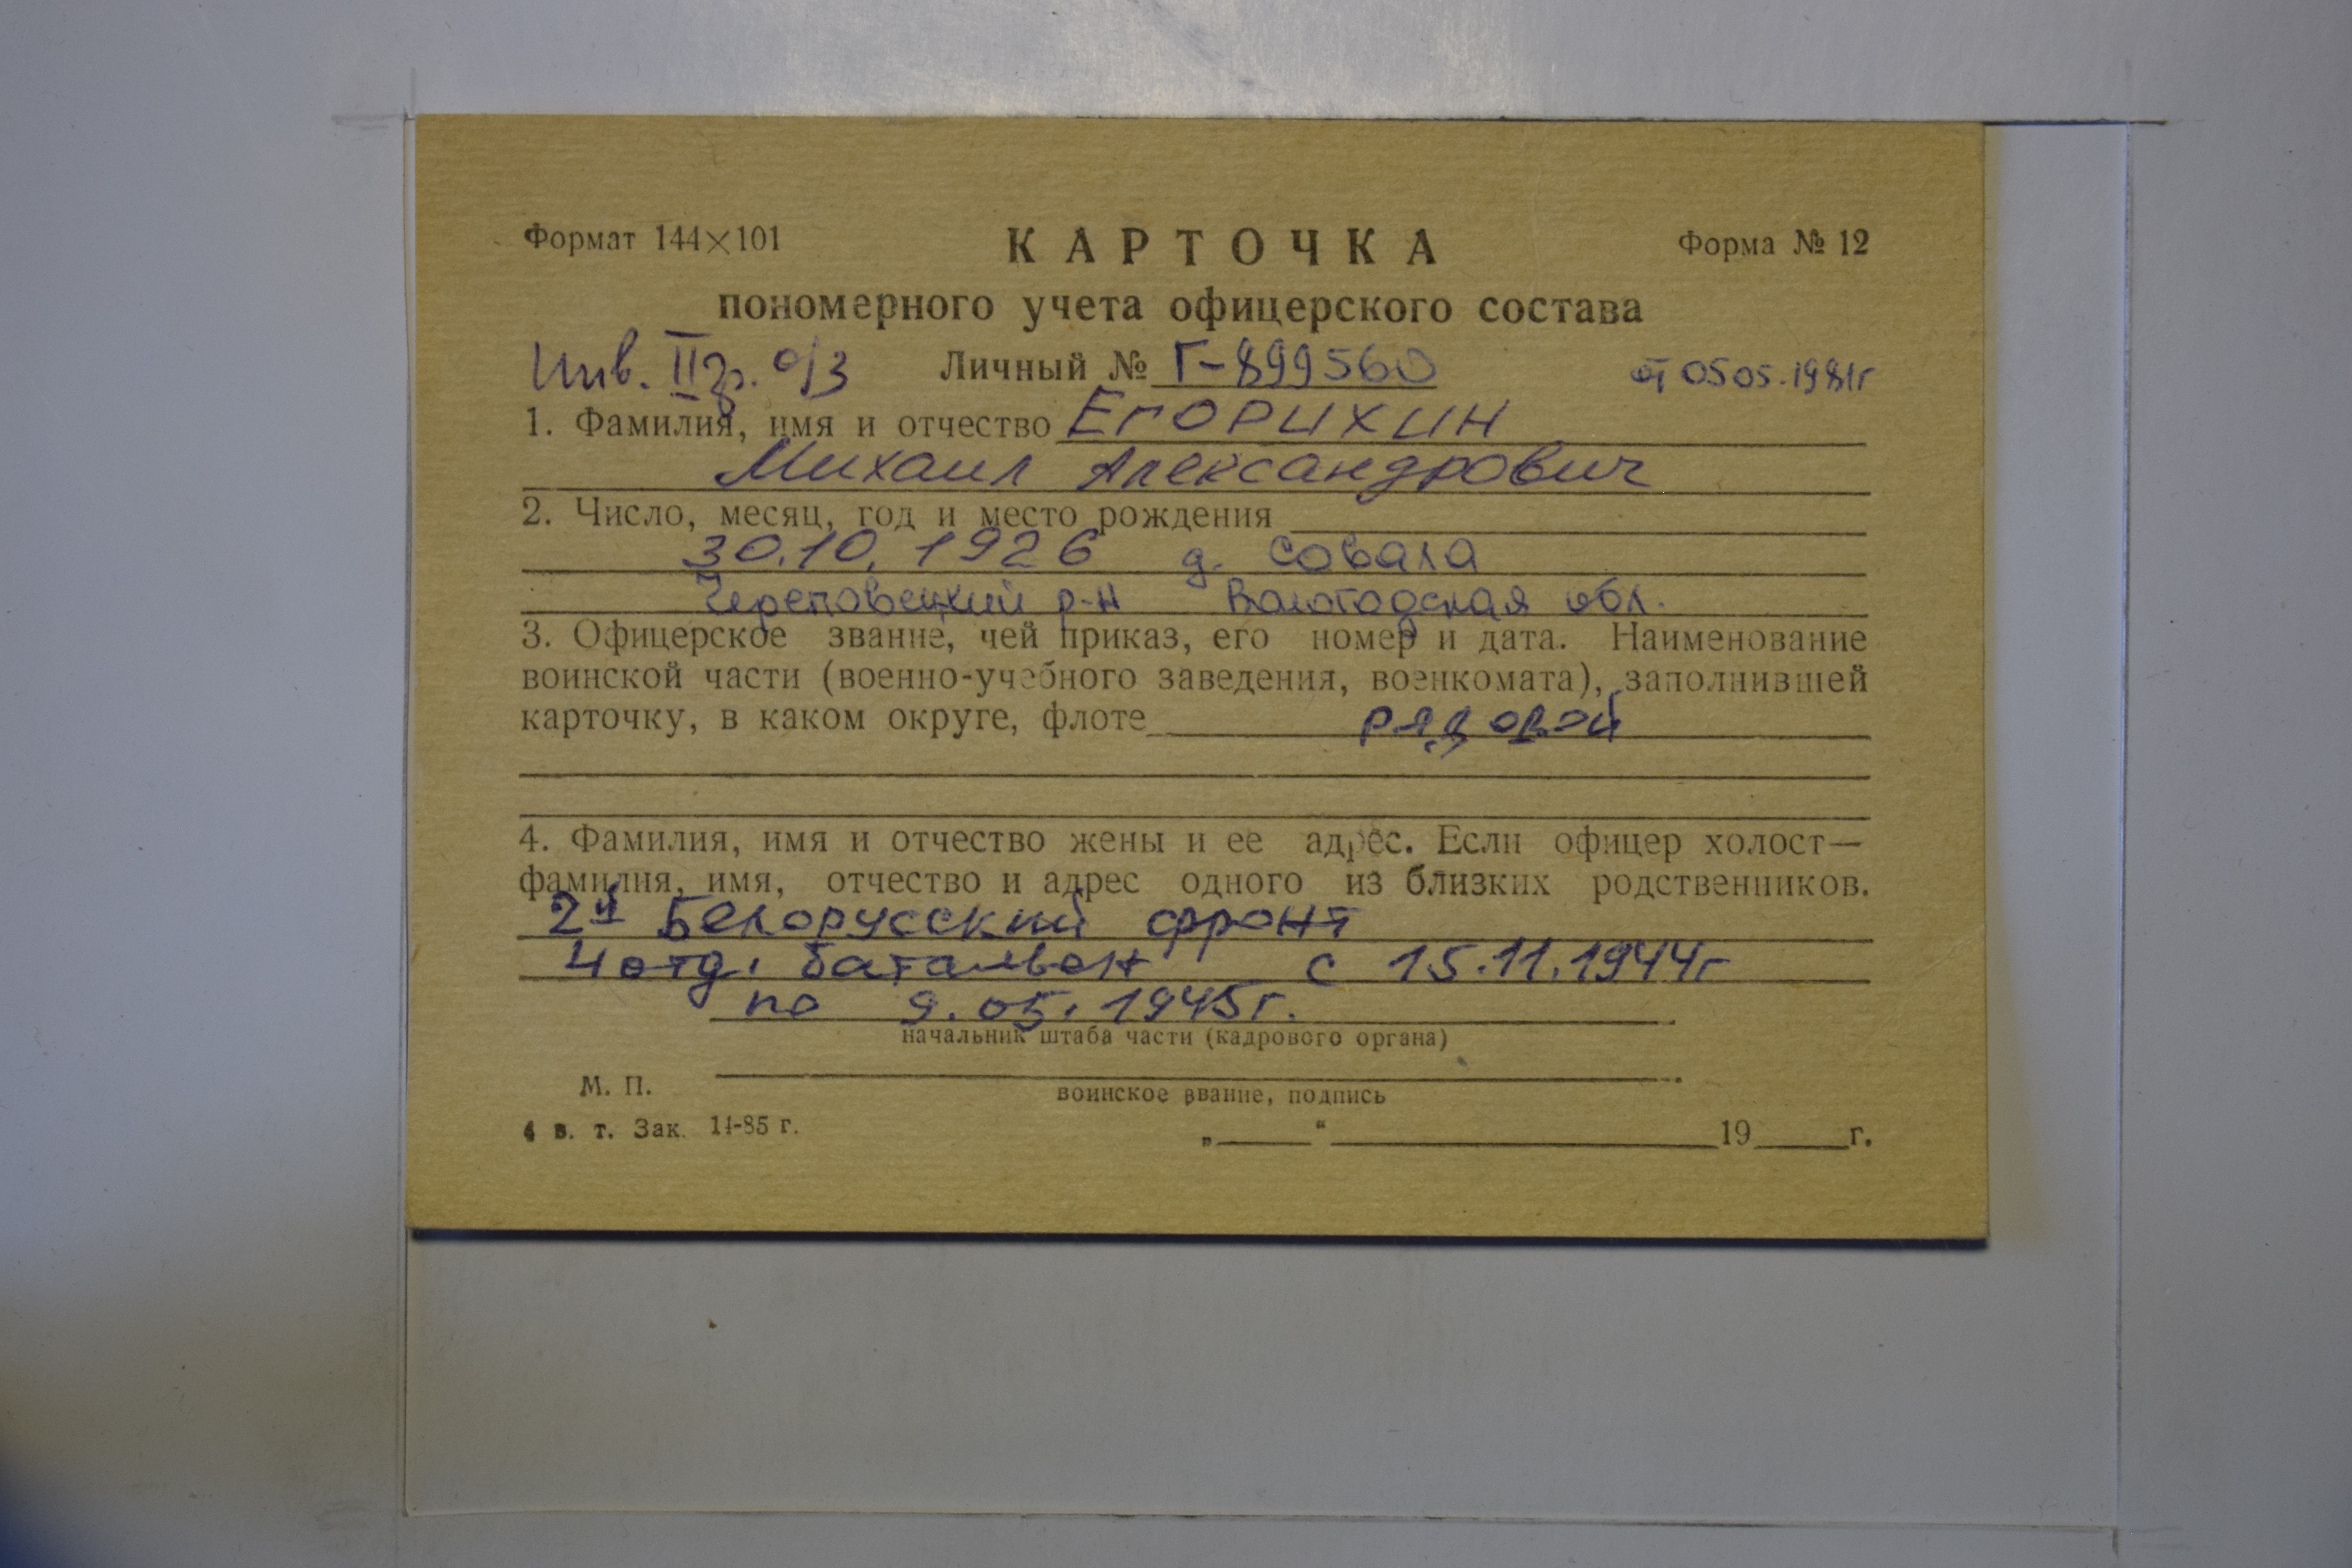 Формат 144×101 КАРТОЧКА Форма № 12
пономерного учета офицерского состава
Инв. II гр. о/з Личный № Г-899560 от 05 05.1981г
1. Фамилия, имя и отчество Егорихин
Михаил Александрович
2. Число, месяц, год и место рождения
30.10.1926 д. Совала
Череповецкий р-н Вологодская обл.
3. Офицерское звание, чей приказ, его номер и дата. Наименование
воинской части (военно-учебного заведения, военкомата), заполнившей
карточку, в каком округе, флоте рядовой
4. Фамилия, имя и отчество жены и ее адрес. Если офицер холост—
фамилия, имя, отчество и адрес одного из близких родственников.
2й Белорусский фронт
4 отд. батальон с 15.11.1944г
по 9.05.1945г.
начальник штаба части (кадрового органа)
М. П.
воинское звание, подпись
4 в. т. Зак. 14-85 г. „ “ 19 г.